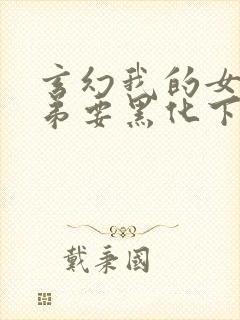 玄幻我的女
弟要黑化下
戴秉國